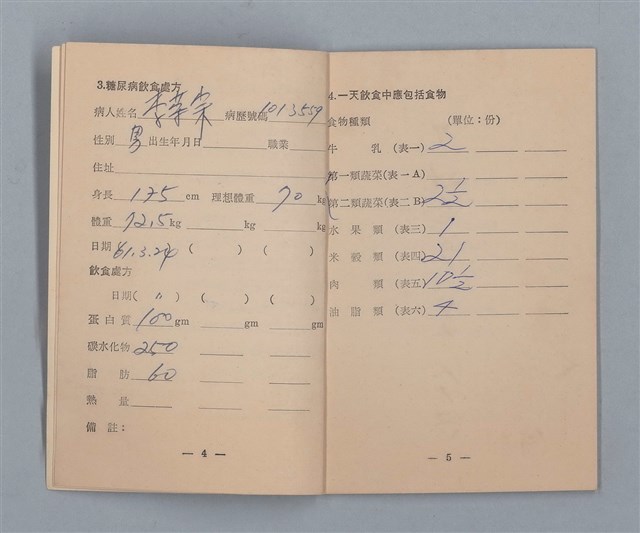 3.糖尿病飲食處方
病人姓名 李榮宗 病歷號碼 1013559
性別 男 出生年月日 職業
住址
身長 175 cm 理想體重 70 kg
體重 72.5 kg kg kg
日期 61.3.24 ( ) ( )
飲食處方
日期( 〃 ) ( ) ( )
蛋白質 100 gm gm gm
碳水化物 250
脂肪 60
熱量
備註：
— 4 —
4.一天飲食中應包括食物
食物種類 (單位：份)
牛乳 (表一) 2
第一類蔬菜(表一A)
第二類蔬菜(表二B) 2½
水果類 (表三) 1
米穀類 (表四) 21
肉類 (表五) 10½
油脂類 (表六) 4
— 5 —